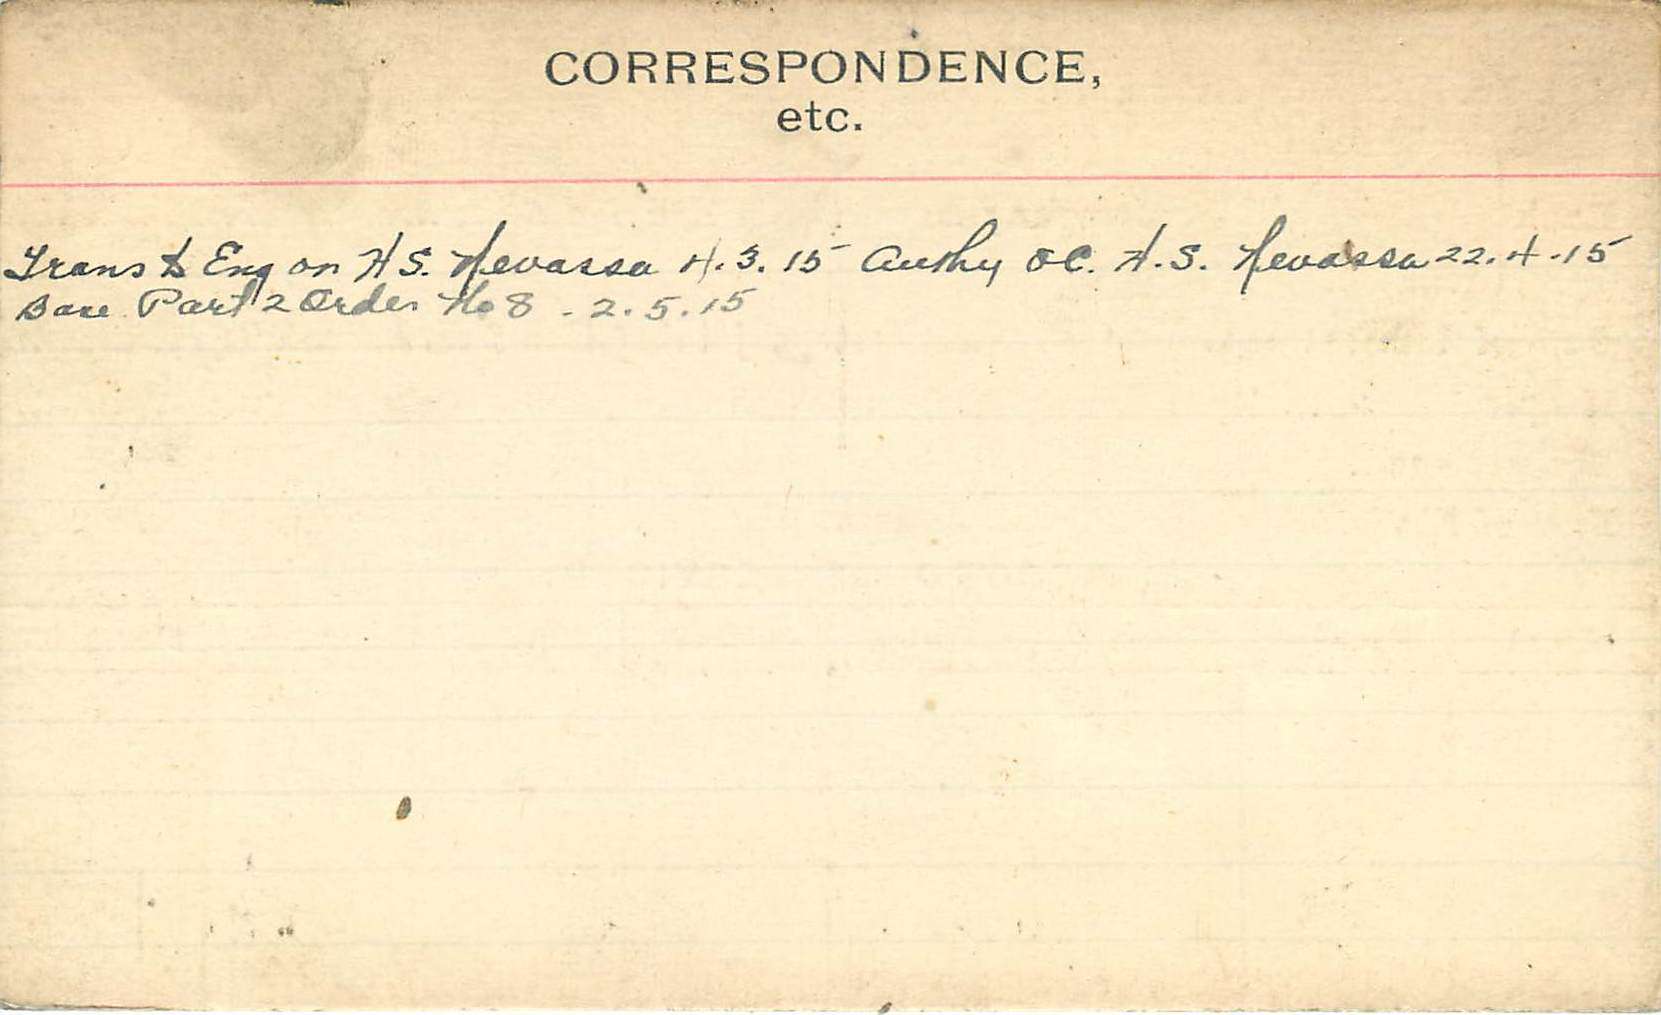 CORRESPONDENCE,
etc.
Trans to Eng on H S. Nevassa 4.3.15 Authy OC. H.S. Nevassa 22.4.15
Base Part 2 Order No 8 - 2.5.15